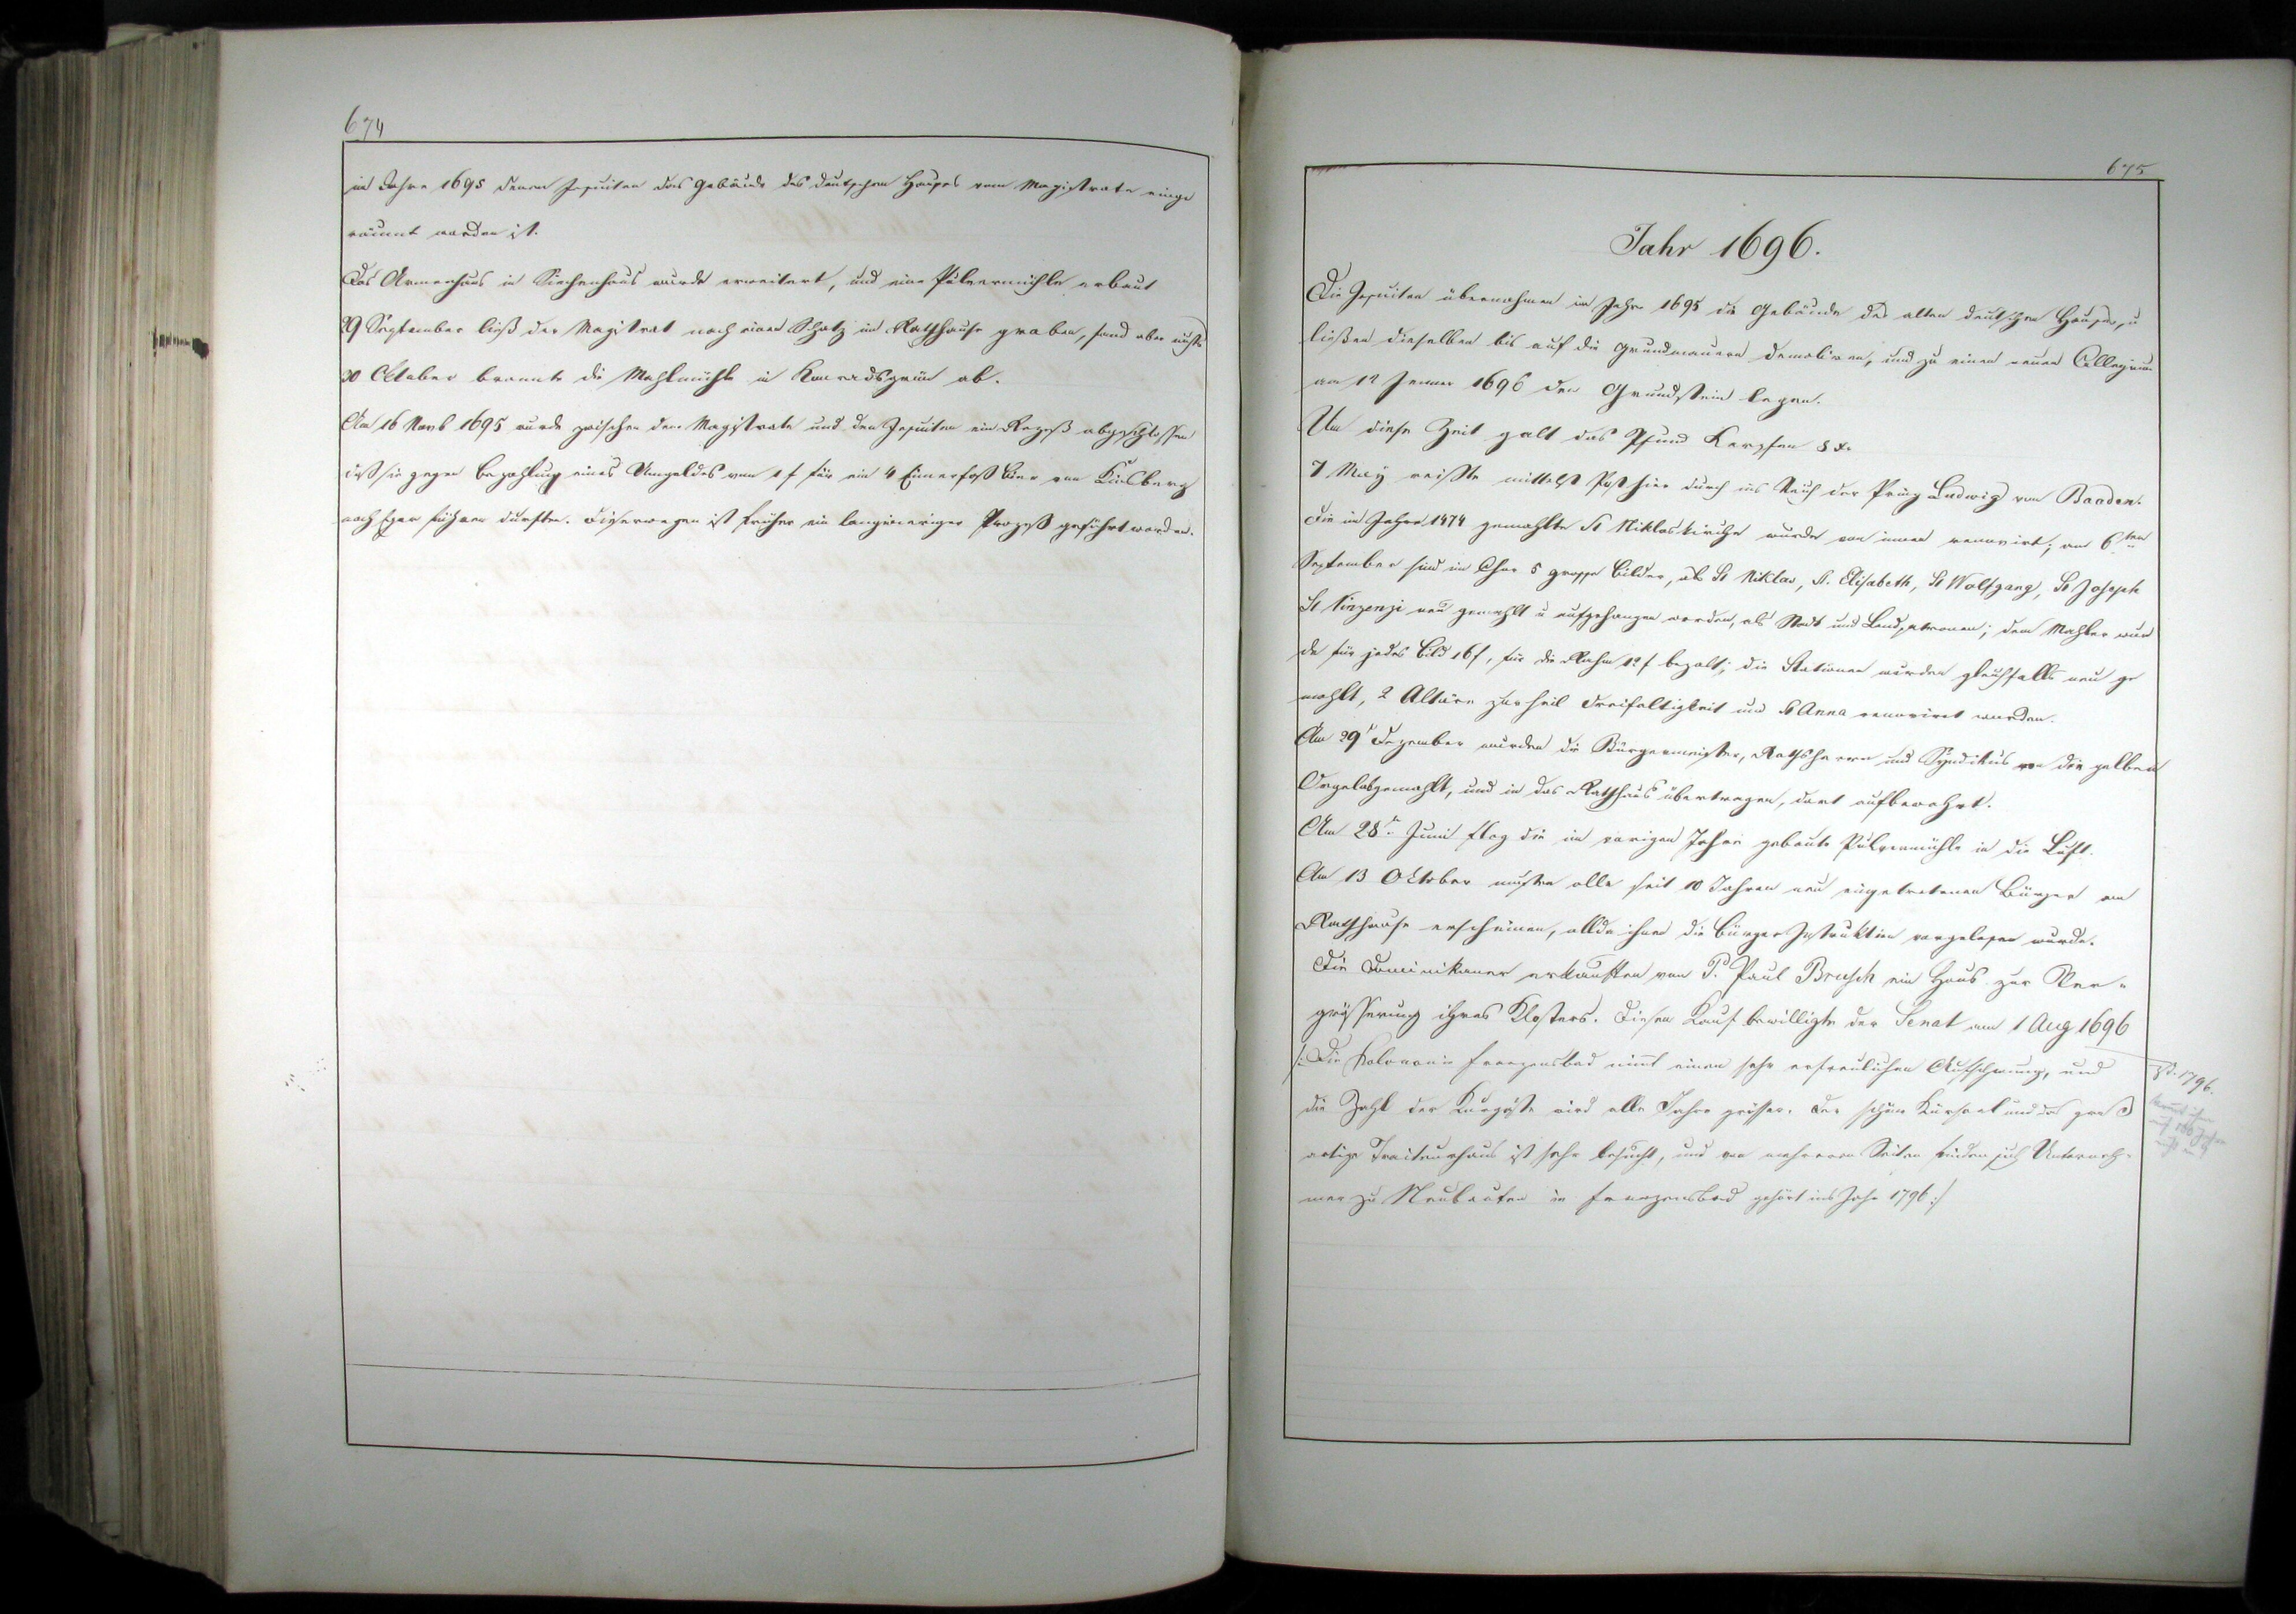 674
im Jahre 1695 denen Jesuiten das Gebäude des deutschen Hauses vom Magistrate einge
räumt worden ist.
Das Armenhaus in Siechenhaus wurde erweitert, und eine Pulvermühle erbaut
29 September ließ der Magistrat nach einen Schatz im Rathhause graben, fand aber nichts
30 Oktober brannte die Mahlmühle in Konradsgrün ab.
Am 16 Novb 1695 wurde zwischen dem Magistrate und den Jesuiten ein Rezeß abgeschlossen
daß sie gegen Bezahlung eines Umgeldes von 1 f für ein 4 Eimerfaß Bier von Kinsberg
nach Eger führen durften. Dieserwegen ist früher ein langwieriger Prozeß geführt worden.
675
Jahr 1696.
Die Jesuiten übernahmen im Jahre 1695 die Gebäude des alten deutschen Hauses, u
ließen dieselben bis auf die Grundmauern demoliren, und zu einen neuen Collegium
am 12 Jenner 1696 den Grundstein legen.
Um diese Zeit galt das Pfund Karpfen 8 x.
7 May reiste mittelst Post hier durch ins Reich der Prinz Ludwig von Baaden.
Die im Jahre 1474 gemahlte St Niklaskirche wurde von innen renovirt; am 6ten
September sind im Chor 5 grosse Bilder, als St Niklas, St. Elisabeth, St Wolfgang, St Joseph
St Vinzenzi neu gemahlt u aufgehangen worden, als Stadt und Landpatronen; dem Mahler wur
de für jedes Bild 16 f, für die Rahm 12 f bezalt; die Stationen wurden gleichfalls neu ge
mahlt, 2 Altäre zur heil Dreifaltigkeit und St Anna renovirt worden.
Am 29t Dezember wurden die Bürgermeister, Rathsherrn und Syndikus von der gelben
Orgel abgemahlt, und in das Rathhaus übertragen, dort aufbewahrt.
Am 28t Juni flog die im vorigen Jahre gebaute Pulvermühle in die Luft.
Am 13 Oktober mußten alle seit 10 Jahren neu eingetretenen Bürger am
Rathhause erscheinen, allda ihnen die Bürger Instruktion vorgelesen wurde.
Die Dominikaner erkauften von P. Paul Brusch ein Haus zur Ver-
grösserung ihres Klosters. Diesen Kauf bewilligte der Senat am 1 Aug 1696
/: Die Kolonnie Franzensbad nimt einen sehr erfreulichen Aufschwung, und
die Zahl der Kurgäste wird alle Jahre grösser. Der schöne Kursaal und das groß
artige Traiteurhaus ist sehr besucht, und von mehreren Seiten finden sich Unterneh-
mer zu Neubauten in Franzensbad gehört ins Jahr 1796 :/
1796.